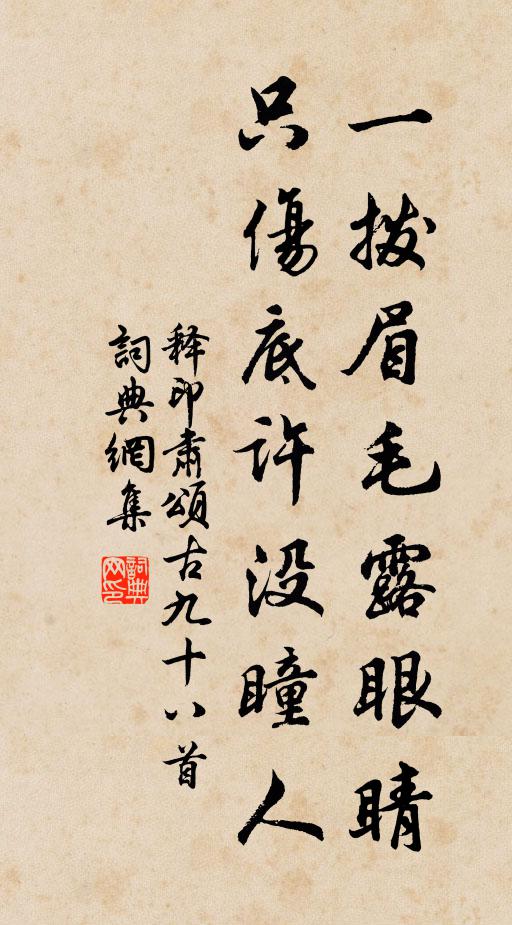 一拨眉毛露眼睛
只傷底许没瞳人
释印肃頌古九十八首
詞典網集
詞典网印